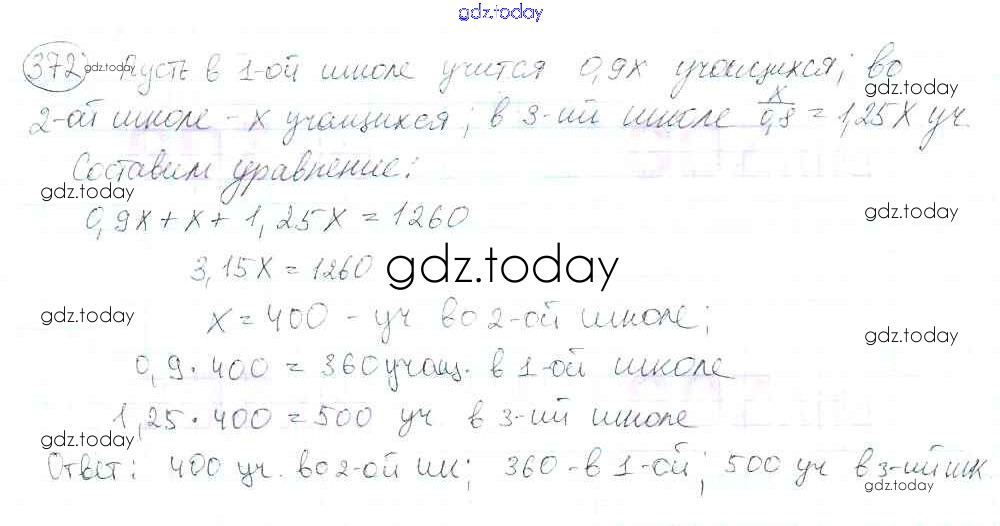 gdz.today
372) gdz.today Пусть в 1-ой школе учится 0,9x учащихся; во gdz.today
2-ой школе - x учащихся; в 3-ий школе x/0,8 = 1,25x уч
Составим уравнение:
gdz.today gdz.today
0,9x + x + 1,25x = 1260
3,15x = 1260 gdz.today
gdz.today x = 400 - уч во 2-ой школе; gdz.today
0,9 · 400 = 360 учащ. в 1-ой школе
1,25 · 400 = 500 уч в 3-ий школе
gdz.today gdz.today
Ответ: 400 уч. во 2-ой шк; 360 - в 1-ой; 500 уч в 3-ий шк.
gdz.today